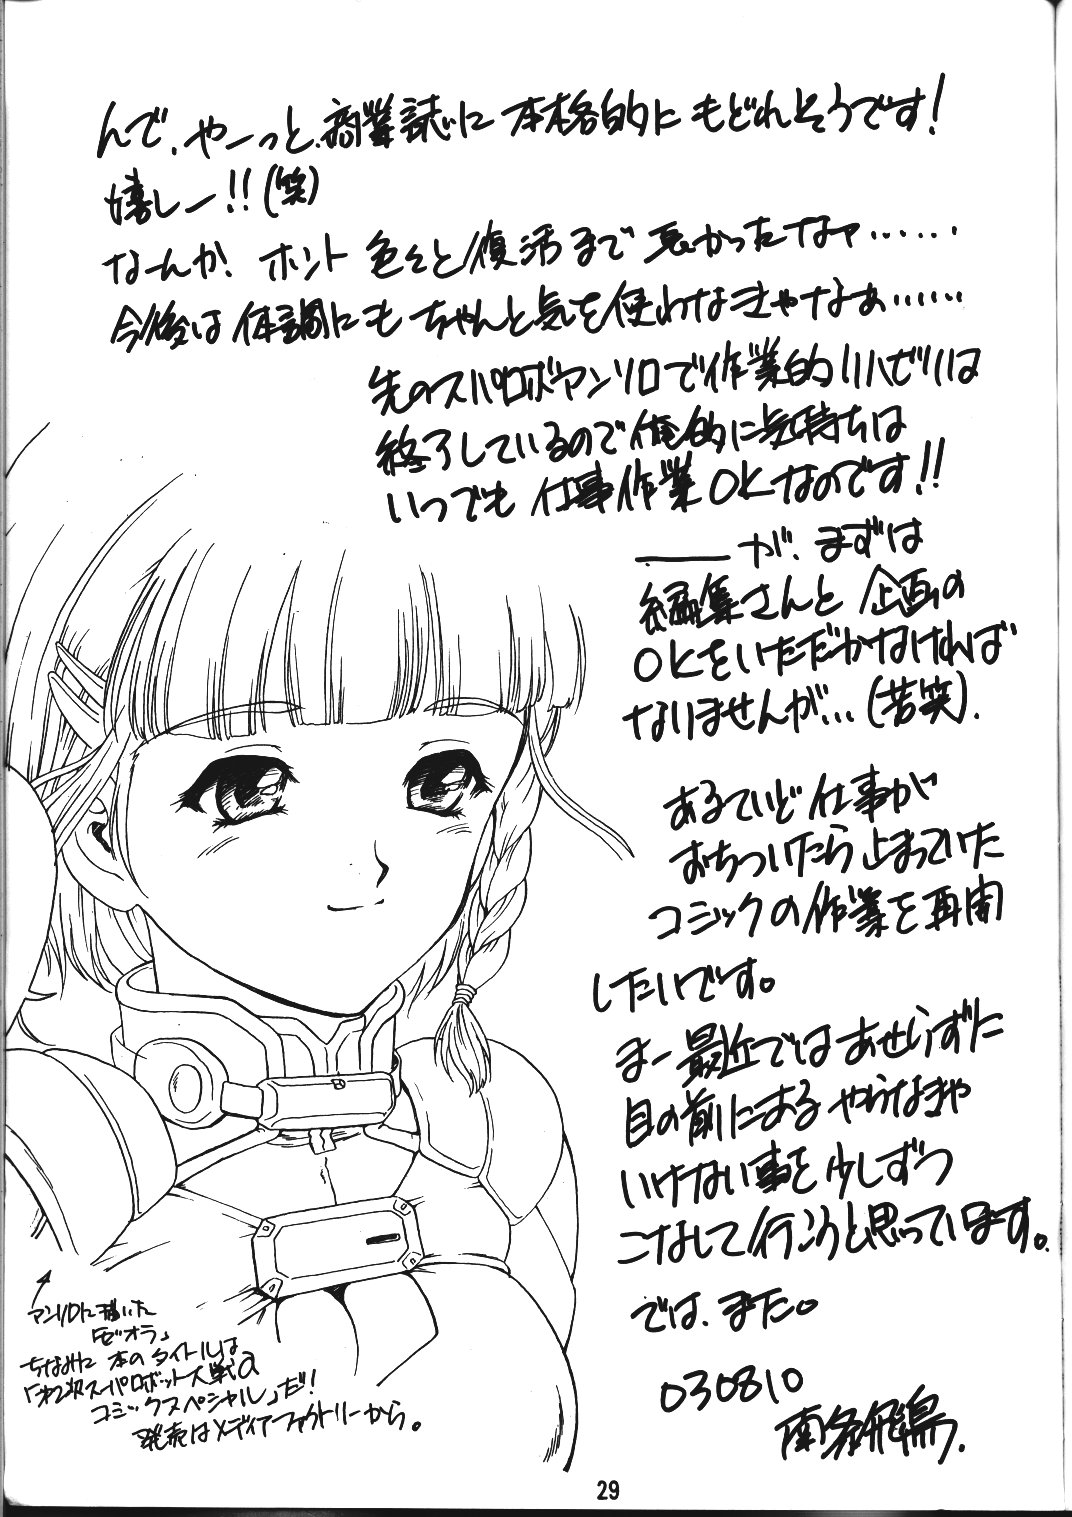 んで、やーっと、商業誌に本格的にもどれそうです!
嬉しー!!(笑)
なんか、ホント色々と復活まで長かったなァ……
今後は体調にもちゃんと気を使わなきゃなぁ……
先のスパロボアンソロで作業的リハビリは
終了しているので俺的に気持ちは
いつでも仕事作業OKなのです!!
――が、まずは
編集さんと企画の
OKをいただかなければ
なりませんが…(苦笑).
あるていど仕事が
おちついたら止まっていた
コミックの作業を再開
したいです。
まー最近ではあせらずに
目の前にあるやらなきゃ
いけない事を少しずつ
こなして行こうと思っています。
では、また。
030810
南条飛鳥.
アンソロに描いた
「ゼオラ」
ちなみに本のタイトルは
「第2次スーパーロボット大戦α
コミックスペシャル」だ!
発売はメディアファクトリーから。
B
29